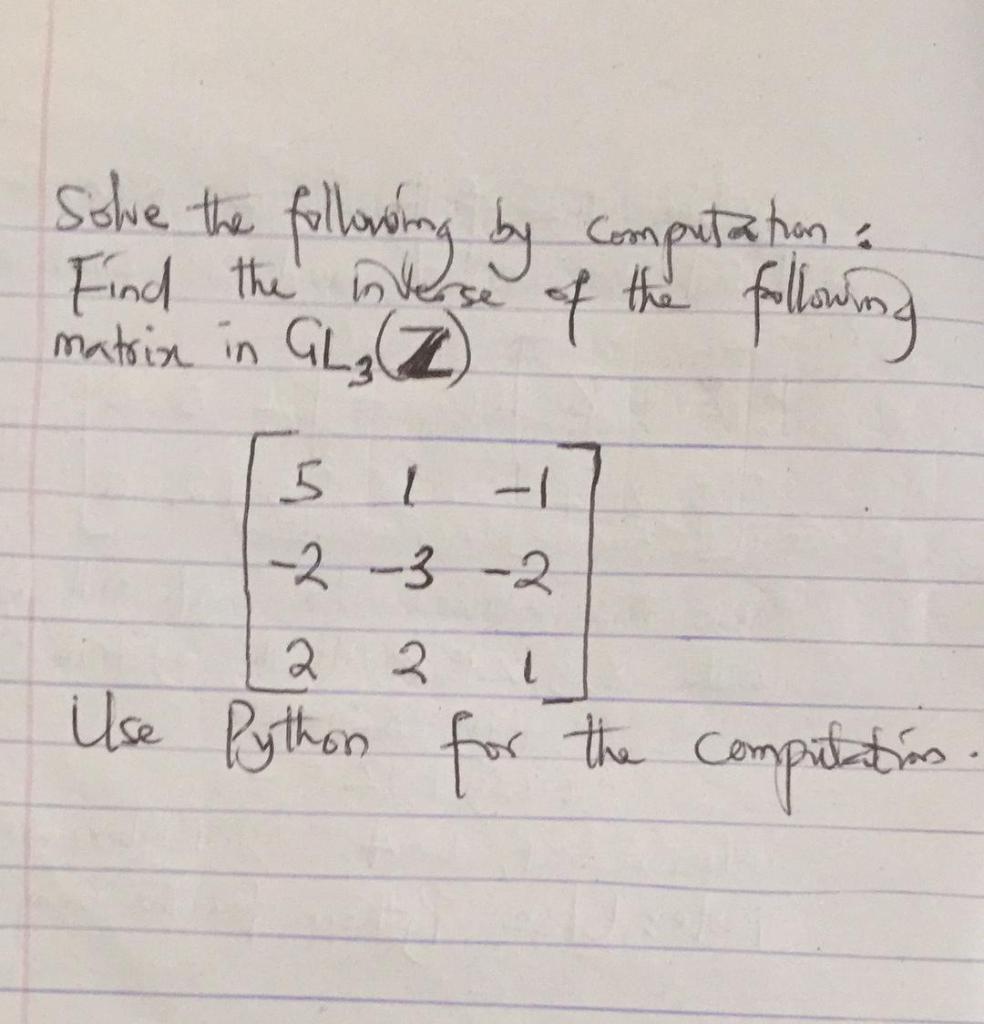 Solve the following by computation :
Find the inverse of the following
matrix in GL3(Z)
5 1 -1
-2 -3 -2
2 2 1
Use Python for the computation.